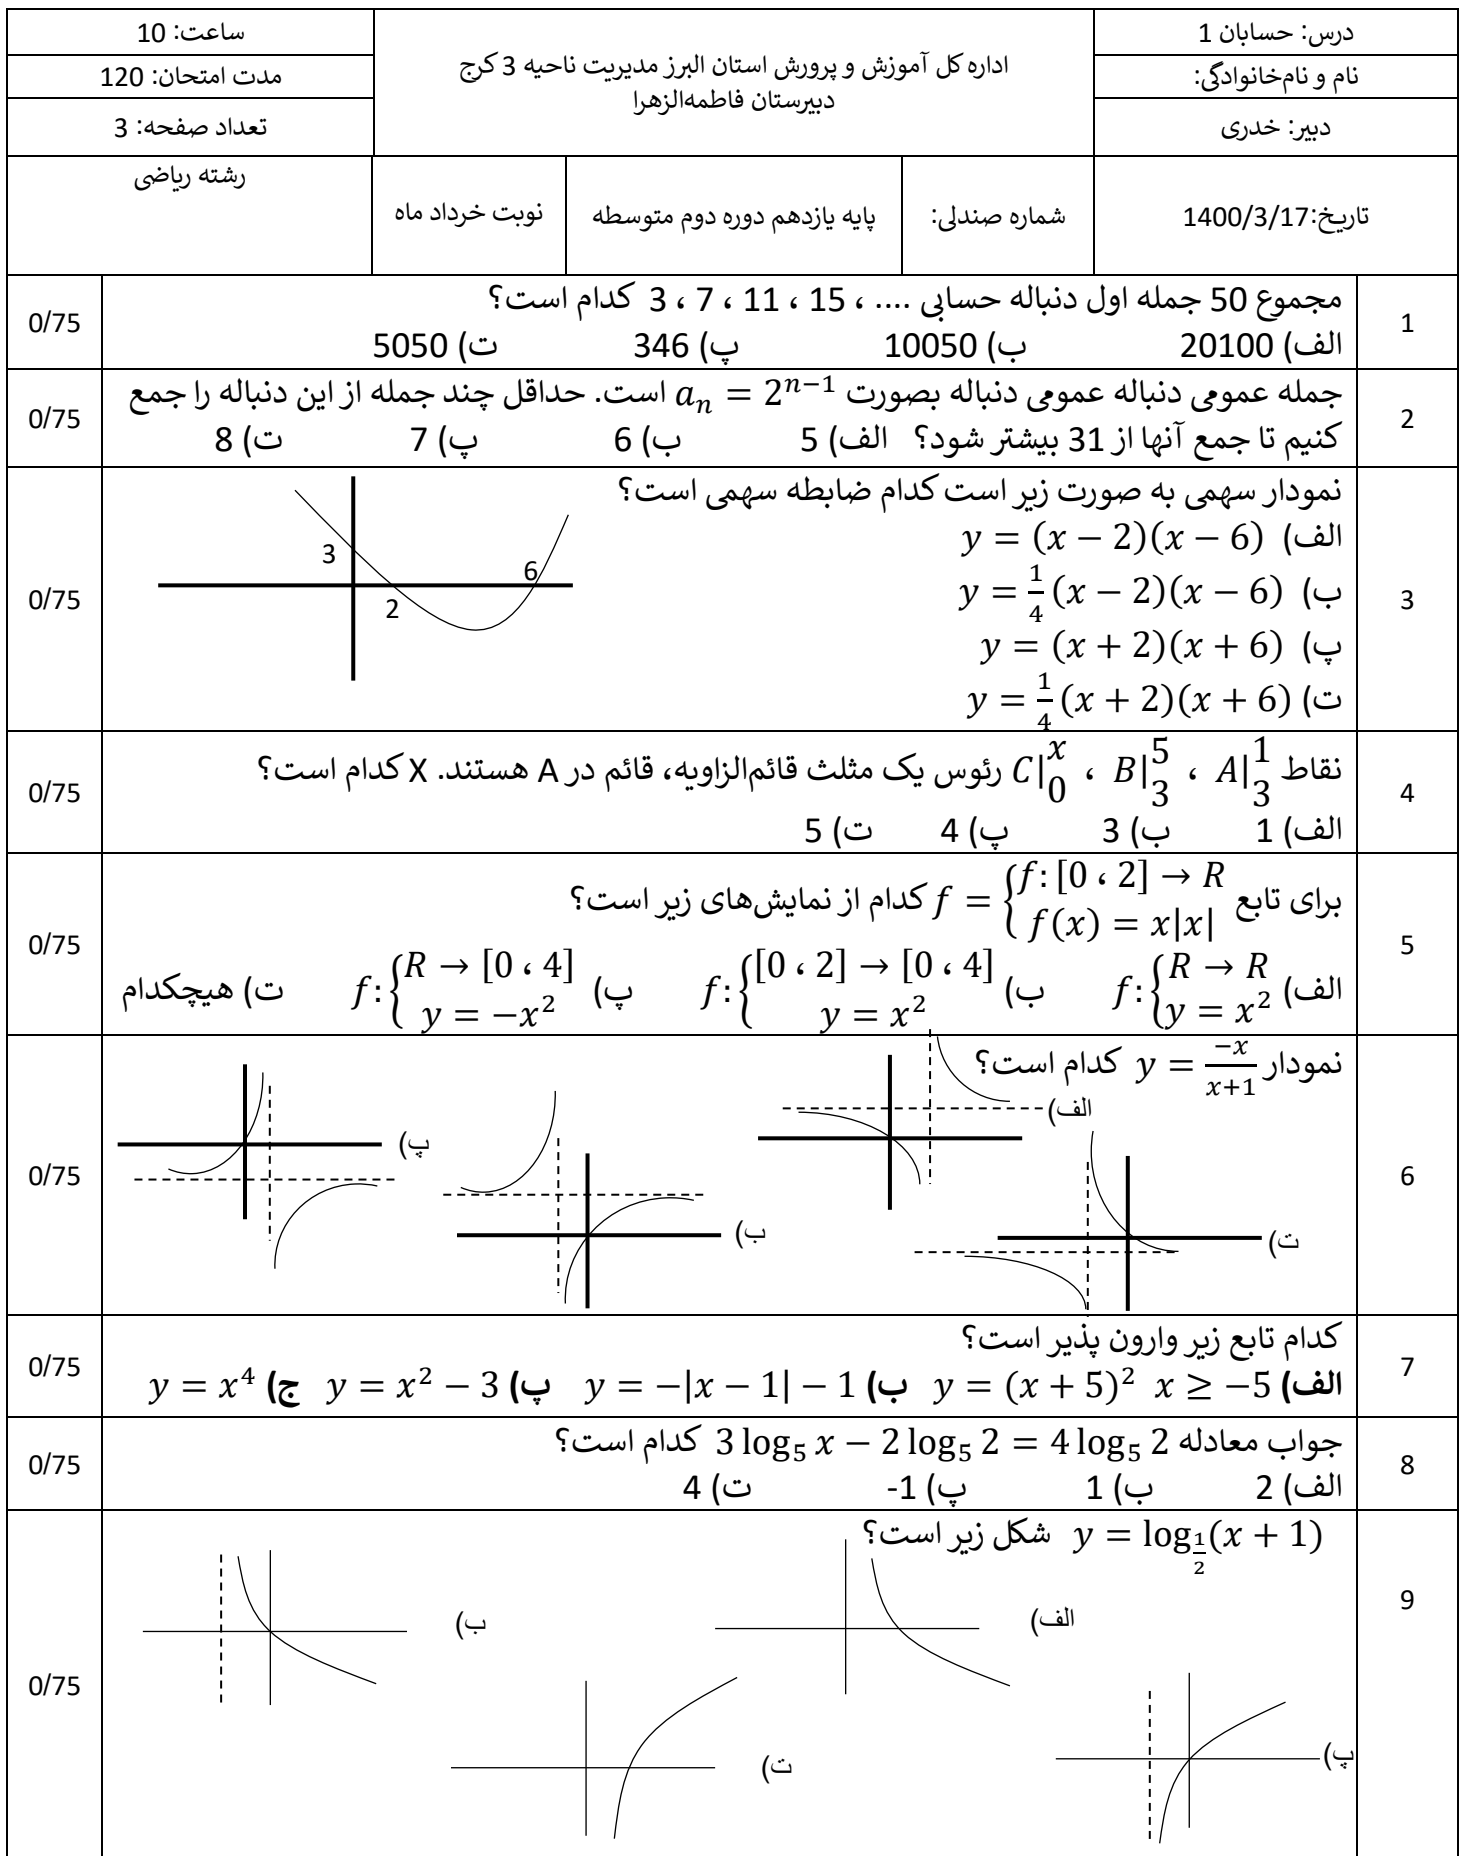 درس: حسابان 1
اداره کل آموزش و پرورش استان البرز مدیریت ناحیه 3 کرج
دبیرستان فاطمه‌الزهرا
ساعت: 10
نام و نام‌خانوادگی:
مدت امتحان: 120
دبیر: خدری
تعداد صفحه: 3
تاریخ:1400/3/17
شماره صندلی:
پایه یازدهم دوره دوم متوسطه
نوبت خرداد ماه
رشته ریاضی
1
مجموع 50 جمله اول دنباله حسابی .... ، 15 ، 11 ، 7 ، 3 کدام است؟
الف) 20100 ب) 10050 پ) 346 ت) 5050
0/75
2
جمله عمومی دنباله عمومی دنباله بصورت aₙ = 2ⁿ⁻¹ است. حداقل چند جمله از این دنباله را جمع
کنیم تا جمع آنها از 31 بیشتر شود؟ الف) 5 ب) 6 پ) 7 ت) 8
0/75
3
نمودار سهمی به صورت زیر است کدام ضابطه سهمی است؟
الف) y = (x − 2)(x − 6)
ب) y = 1/4 (x − 2)(x − 6)
پ) y = (x + 2)(x + 6)
ت) y = 1/4 (x + 2)(x + 6)
3
6
2
0/75
4
نقاط A|1 3 ، B|5 3 ، C|x 0 رئوس یک مثلث قائم‌الزاویه، قائم در A هستند. X کدام است؟
الف) 1 ب) 3 پ) 4 ت) 5
0/75
5
برای تابع f = {f: [0 ، 2] → R f(x) = x|x| کدام از نمایش‌های زیر است؟
الف) f: {R → R y = x² ب) f: {[0 ، 2] → [0 ، 4] y = x² پ) f: {R → [0 ، 4] y = −x² ت) هیچکدام
0/75
6
نمودار y = −x/(x+1) کدام است؟
الف)
پ)
ب)
ت)
0/75
7
کدام تابع زیر وارون پذیر است؟
الف) y = (x + 5)² x ≥ −5 ب) y = −|x − 1| − 1 پ) y = x² − 3 ج) y = x⁴
0/75
8
جواب معادله 3 log₅ x − 2 log₅ 2 = 4 log₅ 2 کدام است؟
الف) 2 ب) 1 پ) 1- ت) 4
0/75
9
y = log_{1/2}(x + 1) شکل زیر است؟
الف)
ب)
پ)
ت)
0/75